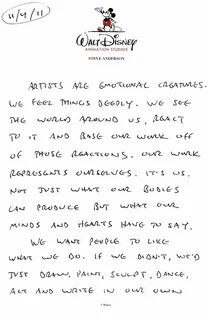 11/4/11
WALT DISNEY
ANIMATION STUDIOS
STEVE ANDERSON
ARTISTS ARE EMOTIONAL CREATURES.
WE FEEL THINGS DEEPLY. WE SEE
THE WORLD AROUND US, REACT
TO IT AND BASE OUR WORK OFF
OF THOSE REACTIONS. OUR WORK
REPRESENTS OURSELVES. IT'S US,
NOT JUST WHAT OUR BODIES
CAN PRODUCE BUT WHAT OUR
MINDS AND HEARTS HAVE TO SAY.
WE WANT PEOPLE TO LIKE
WHAT WE DO. IF WE DIDN'T, WE'D
JUST DRAW, PAINT, SCULPT, DANCE,
ACT AND WRITE IN OUR OWN